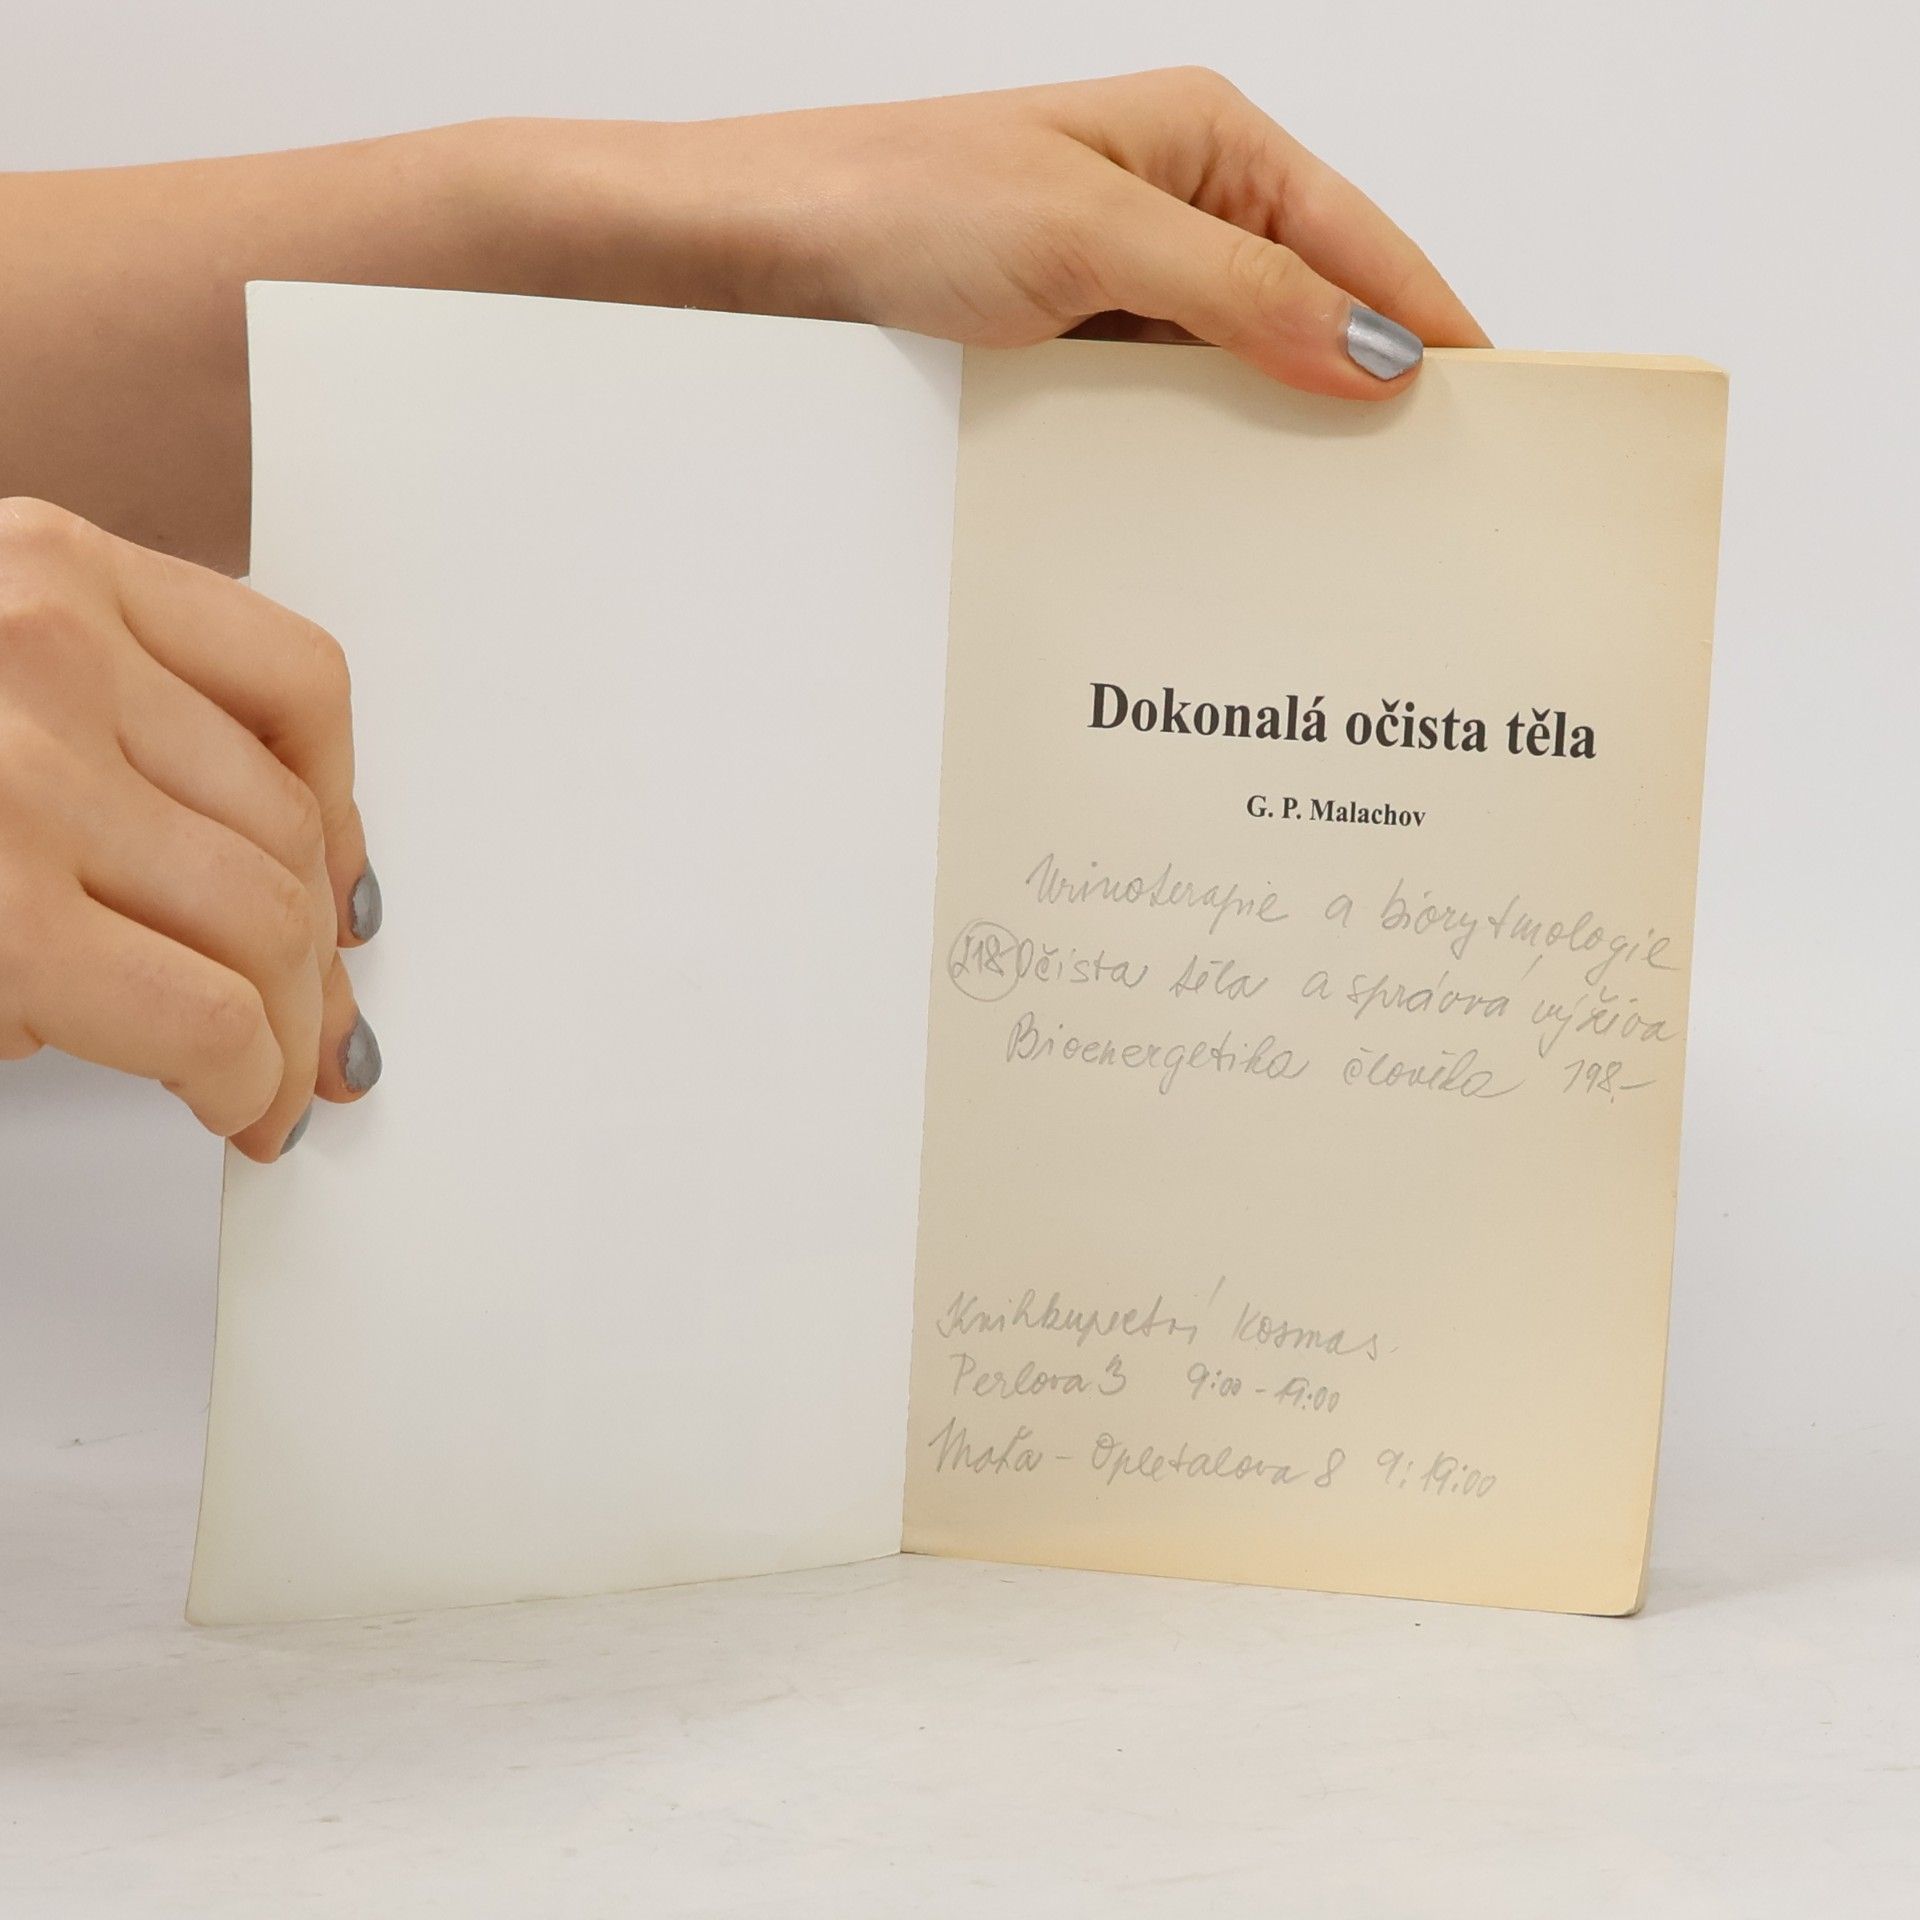 Dokonalá očista těla
G. P. Malachov
Urinoterapie a biorytmologie
218 Očista těla a správná výživa
Bioenergetika člověka 198,-
Knihkupectví Kosmas
Perlova 3 9:00 - 19:00
Maťa - Opletalova 8 9: 19:00